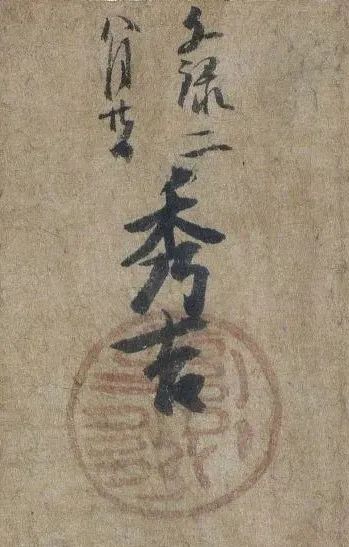 文禄二
八月廿
秀吉